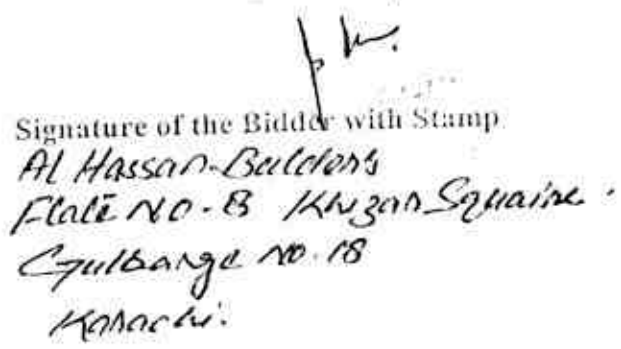 Signature of the Bidder with Stamp
Al Hassan Builders
Flate No. B Khizan Squaine.
Gulbarge No. 18
Karachi.